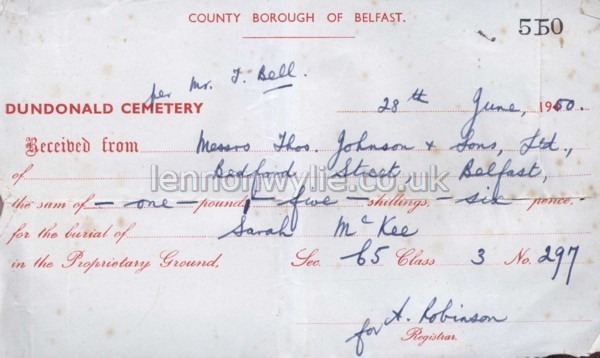 COUNTY BOROUGH OF BELFAST.
5150
per Mr. J. Bell.
DUNDONALD CEMETERY 28th June, 1960.
Received from Messrs Thos. Johnson & Sons, Ltd.,
of Bedford Street, Belfast,
lennonwylie.co.uk
the sum of - one - pound, - five - shillings, - six - pence.
for the burial of Sarah McKee
in the Proprietary Ground, Sec. C5 Class 3 No. 297
for A. Robinson
Registrar.